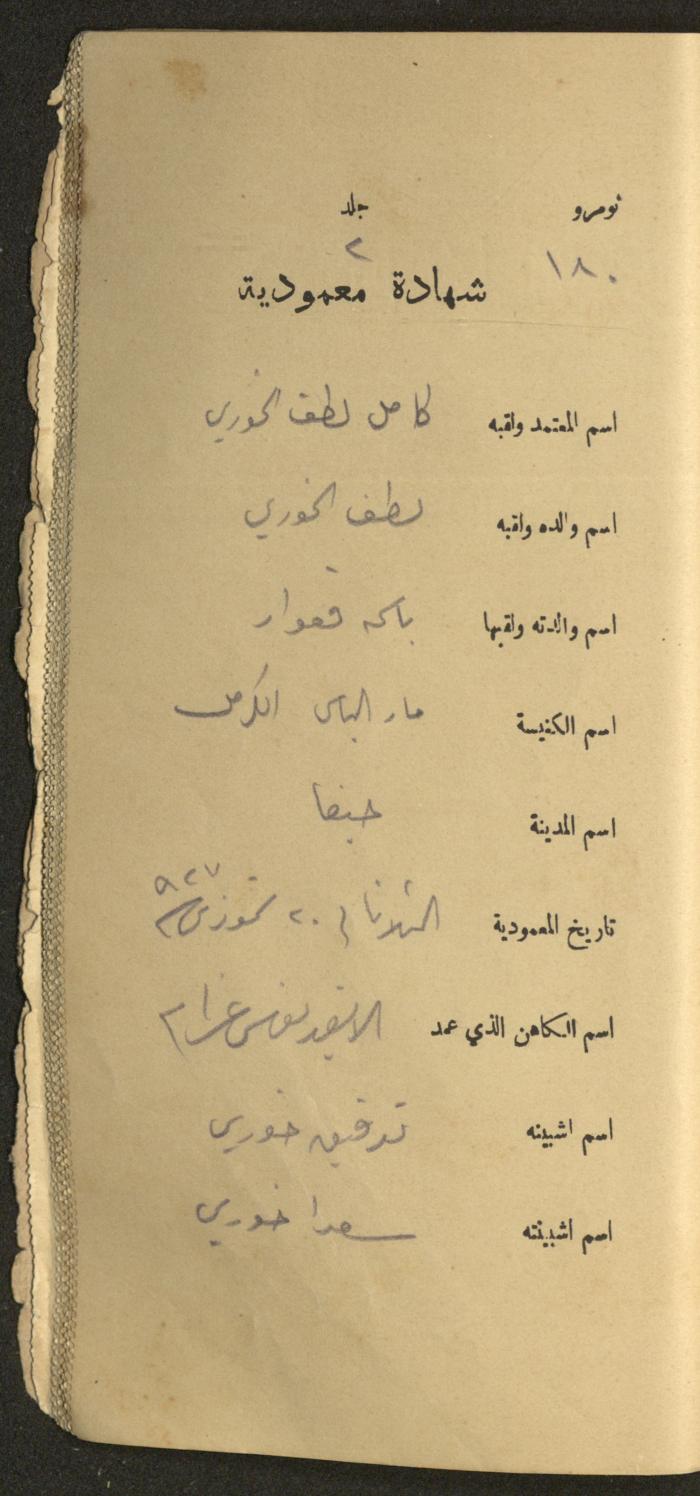 نومرو جلد
١٨٠ ٢
شهادة معمودية
اسم المعتمد ولقبه كامل لطف الخوري
اسم والده ولقبه لطف الخوري
اسم والدته ولقبها قعوار
اسم الكنيسة مار الياس الكرمل
اسم المدينة حيفا
تاريخ المعمودية الثلاثاء ٢٠ تموز ٩٢٧
اسم الكاهن الذي عمد
اسم اشبينه توفيق خوري
اسم اشبينته سعدا خوري